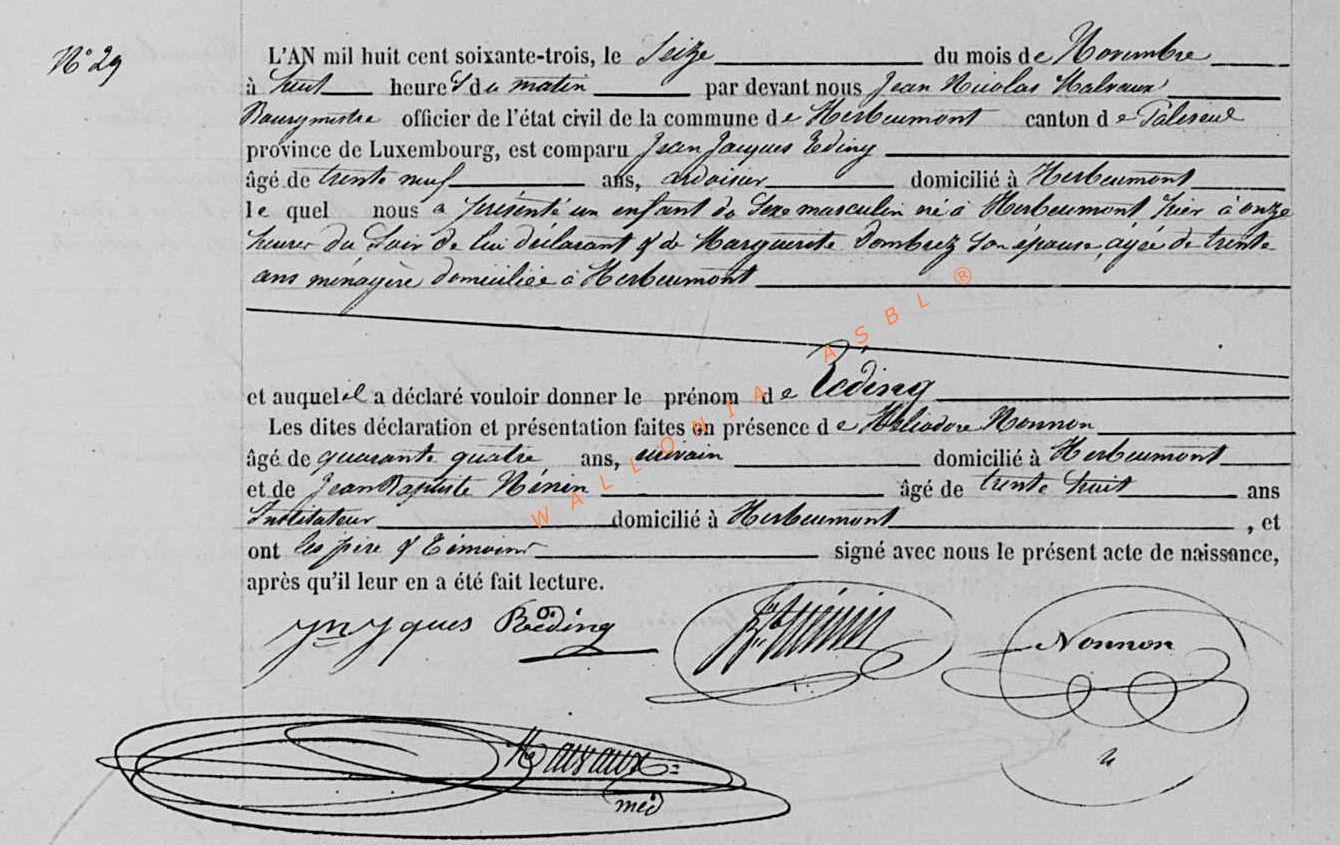 N° 29
L'AN mil huit cent soixante-trois, le Seize du mois de Novembre
à huit heures du matin par devant nous Jean Nicolas Halvaux
Bourgmestre officier de l'état civil de la commune de Herbeumont canton de Paliseul
province de Luxembourg, est comparu Jean Jacques Eding
âgé de trente neuf ans, ardoisier domicilié à Herbeumont
le quel nous a présenté un enfant du Sexe masculin né à Herbeumont hier à onze
heures du Soir de lui déclarant & de Marguerite Dombrez Son épouse, agée de trente
ans ménagère domiciliée à Herbeumont
et auquel il a déclaré vouloir donner le prénom de
Les dites déclaration et présentation faites en présence de Héliodore Nonnon
âgé de quarante quatre ans, domicilié à Herbeumont
et de Jean Baptiste Nénin âgé de trente huit ans
Instituteur domicilié à Herbeumont, et
ont les père & Témoins signé avec nous le présent acte de naissance,
après qu'il leur en a été fait lecture.
Jn Jques Rœding
Nonnon
méd
WALLONIA ASBL ®